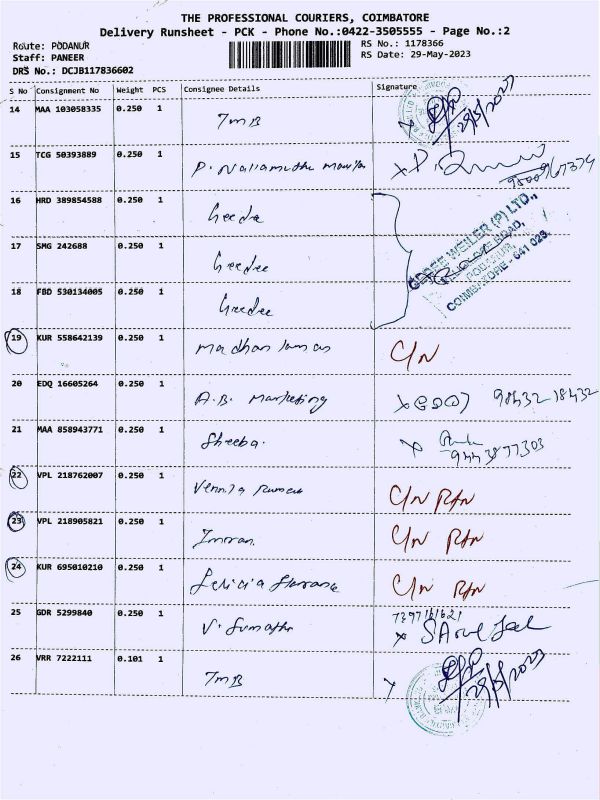 THE PROFESSIONAL COURIERS, COIMBATORE
Delivery Runsheet - PCK - Phone No.:0422-3505555 - Page No.:2
Route: PODANUR
RS No.: 1178366
Staff: PANEER
RS Date: 29-May-2023
DRS No.: DCJB117836602
S No Consignment No Weight PCS Consignee Details Signature
14 MAA 103058335 0.250 1 TMB 29/5/2023
15 TCG 50393889 0.250 1 P. Nallamuthu
16 HRD 389854588 0.250 1 Geedee
17 SMG 242688 0.250 1 Geedee
GDEE WEILER (P) LTD.,
PODANUR,
COIMBATORE - 641 023.
18 FBD 530134005 0.250 1 Geedee
19 KUR 558642139 0.250 1 C/N
20 EDQ 16605264 0.250 1 A.B. Marketing 98432 18432
21 MAA 858943771 0.250 1 Sheeba. 9443877303
22 VPL 218762007 0.250 1 C/N
23 VPL 218905821 0.250 1 Imran C/N
24 KUR 695010210 0.250 1 C/N
25 GDR 5299840 0.250 1 V. Sumathi 7397161621
26 VRR 7222111 0.101 1 TMB 29/5/2023